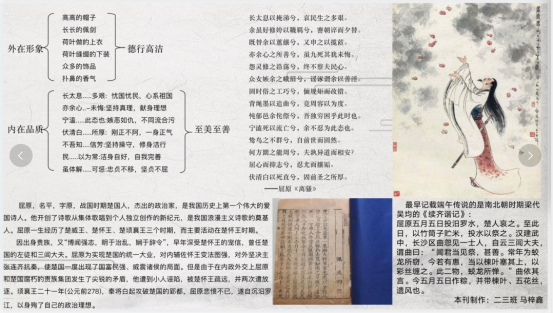 外在形象
高高的帽子
长长的佩剑
荷叶做的上衣
荷叶缝缀的下装
众多的饰品
扑鼻的香气
德行高洁
内在品质
长太息……多艰：忧国忧民、心系祖国
亦余心…未悔:坚持真理，献身理想
宁溘……此态也:嫉恶如仇、不同流合污
伏清白……所厚：刚正不阿，一身正气
不吾知…信芳:坚持操守，修身洁行
民……以为常:洁身自好，自我完善
虽体解……可惩:忠贞不移，坚贞不屈
至美至善
长太息以掩涕兮，哀民生之多艰。
余虽好修姱以鞿羁兮，謇朝谇而夕替。
既替余以蕙纕兮，又申之以揽茝。
亦余心之所善兮，虽九死其犹未悔。
怨灵修之浩荡兮，终不察夫民心。
众女嫉余之蛾眉兮，谣诼谓余以善淫。
固时俗之工巧兮，偭规矩而改错。
背绳墨以追曲兮，竞周容以为度。
忳郁邑余侘傺兮，吾独穷困乎此时也。
宁溘死以流亡兮，余不忍为此态也。
鸷鸟之不群兮，自前世而固然。
何方圜之能周兮，夫孰异道而相安？
屈心而抑志兮，忍尤而攘诟。
伏清白以死直兮，固前圣之所厚。
——屈原《离骚》
屈原，名平，字原，战国时期楚国人，杰出的政治家，是我国历史上第一个伟大的爱
国诗人。他开创了诗歌从集体歌唱到个人独立创作的新纪元，是我国浪漫主义诗歌的奠基
人。屈原一生经历了楚威王、楚怀王、楚顷襄王三个时期，而主要活动在楚怀王时期。
因出身贵族，又"博闻强志，明于治乱，娴于辞令"，早年深受楚怀王的宠信，曾任楚
国的左徒和三闾大夫。屈原为实现楚国的统一大业，对内辅佐怀王变法图强，对外坚决主
张连齐抗秦，使楚国一度出现了国富民强、威震诸侯的局面。但是由于在内政外交上屈原
和楚国腐朽的贵族集团发生了尖锐的矛盾，他遭到小人诬陷，被楚怀王疏远，并两次遭放
逐。顷襄王二十一年(公元前278)，秦将白起攻破楚国的郢都，屈原悲愤不已，遂自沉汨罗
江，以身殉了自己的政治理想。
最早记载端午传说的是南北朝时期梁代
吴均的《续齐谐记》：
屈原五月五日投汨罗水，楚人哀之。至此
日，以竹筒子贮米，投水以祭之。汉建武
中，长沙区曲忽见一士人，自云三闾大夫，
谓曲曰："闻君当见祭，甚善。常年为蛟
龙所窃，今若有惠，当以楝叶塞其上，以
彩丝缠之。此二物，蛟龙所惮。"曲依其
言。今五月五日作粽，并带楝叶、五花丝，
遗风也。
本刊制作：二三班 马梓鑫